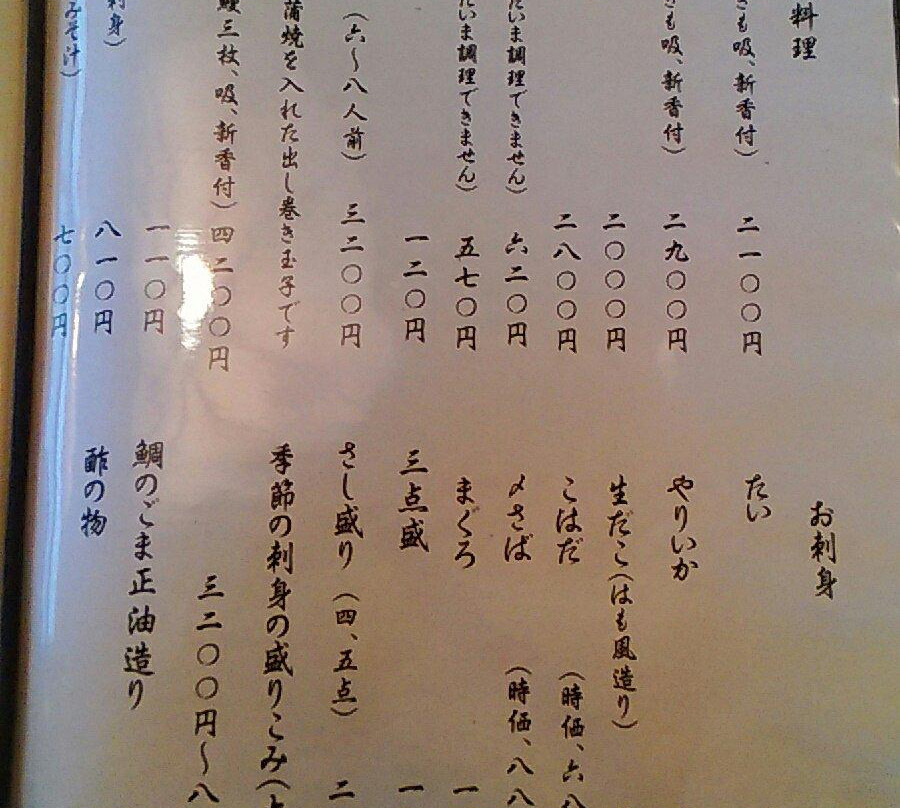 料理
きも吸、新香付）　二一〇〇円
きも吸、新香付）　二九〇〇円
二〇〇〇円
二八〇〇円
だいま調理できません）　六二〇円
だいま調理できません）　五七〇円
一二〇円
（六〜八人前）　三二〇〇円
蒲焼を入れた出し巻き玉子です
鰻三枚、吸、新香付）　四二〇〇円
一一〇円
刺身）　八一〇円
みそ汁）　七〇〇円
お刺身
たい
やりいか
生だこ（はも風造り）
こはだ　（時価、六八
〆さば　（時価、八八
まぐろ　一
三点盛　一
さし盛り（四、五点）　二
季節の刺身の盛りこみ（と
三二〇〇円〜八
鯛のごま正油造り
酢の物